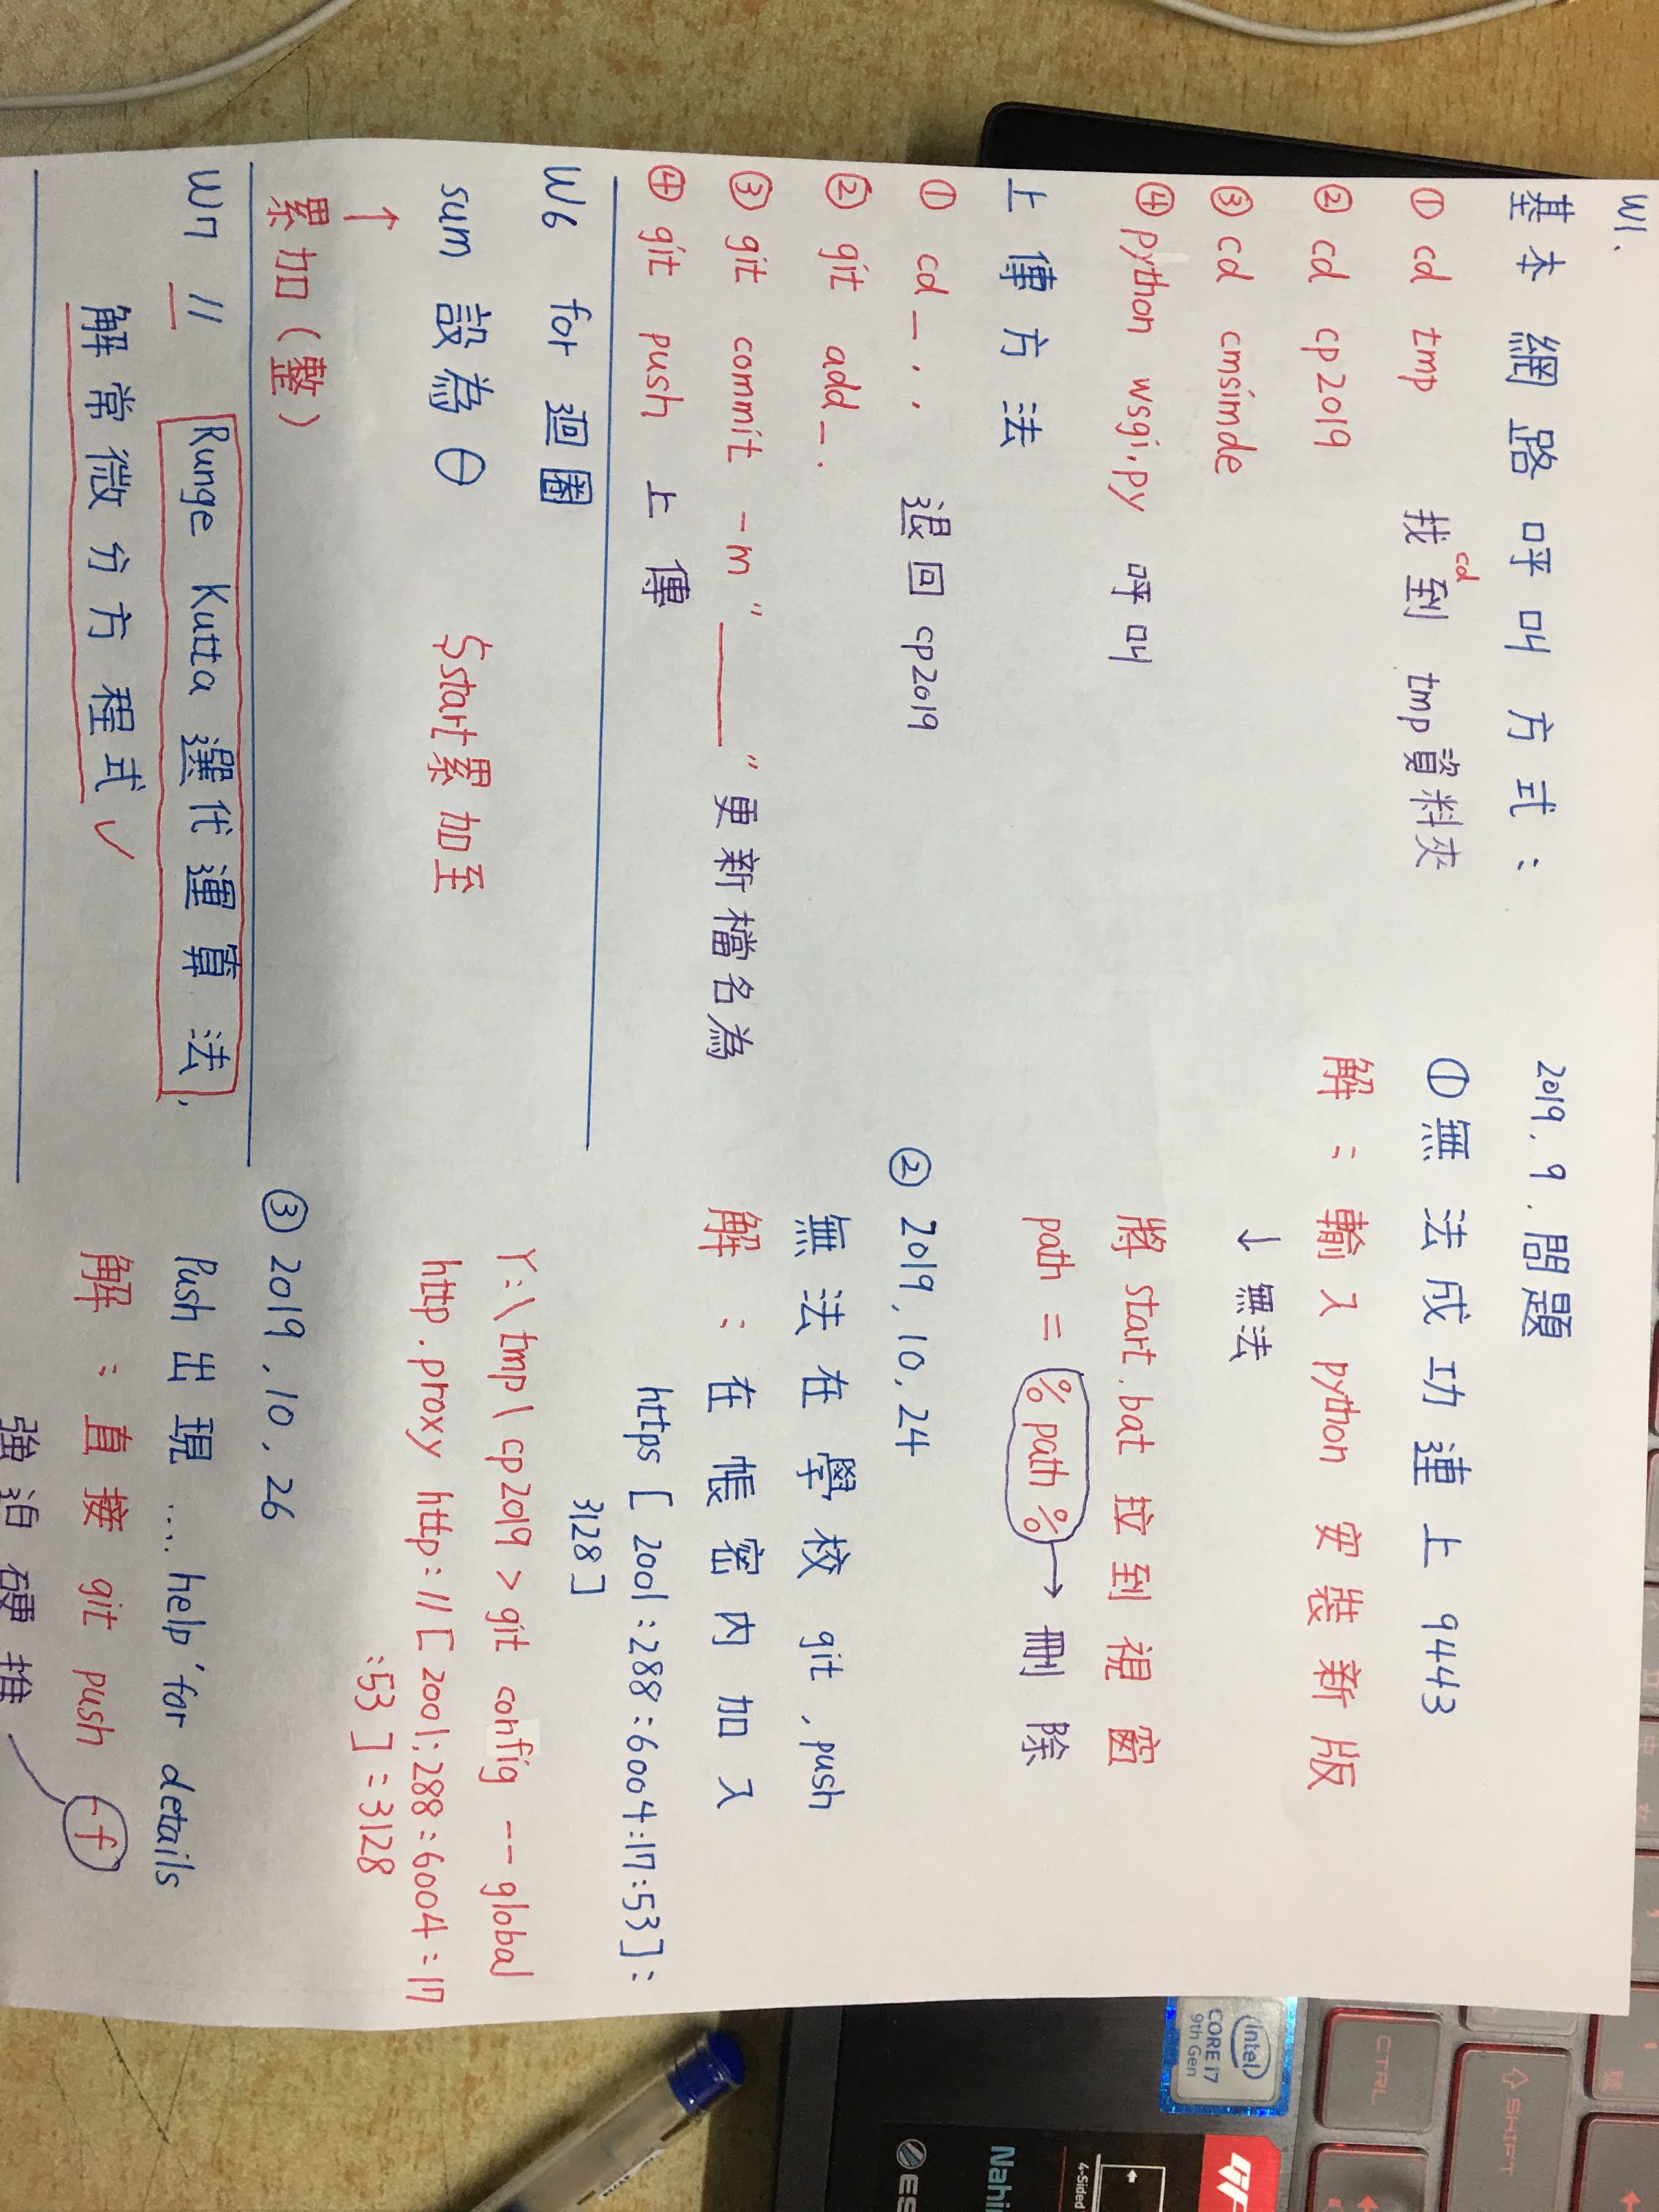 W1.
基本網路呼叫方式：
① cd tmp 找到 tmp資料夾
cd
② cd cp2019
③ cd cmsimde
④ python wsgi.py 呼叫
上傳方法
① cd_.. 退回 cp2019
② git add_.
③ git commit -m "_____" 更新檔名為
④ git push 上傳
W6 for 迴圈
sum 設為 0 $start累加至
↑
累加(整)
W7 // Runge Kutta 選代運算法,
解常微分方程式✓
2019.9.問題
①無法成功連上 9443
解：輸入 python 安裝新版
↓ 無法
將 start.bat 拉到視窗
path = % path % → 刪除
② 2019.10.24
無法在學校 git , push
解：在帳密內加入
https [ 2001:288:6004:17:53]:
3128]
Y:\tmp\cp2019 > git config --global
http.proxy http://[2001:288:6004:17
:53]:3128
③ 2019.10.26
Push 出現 .... help' for details
解：直接 git push -f
強迫硬推
SHIFT
CTRL
intel
CORE i7
9th Gen
4-Sided